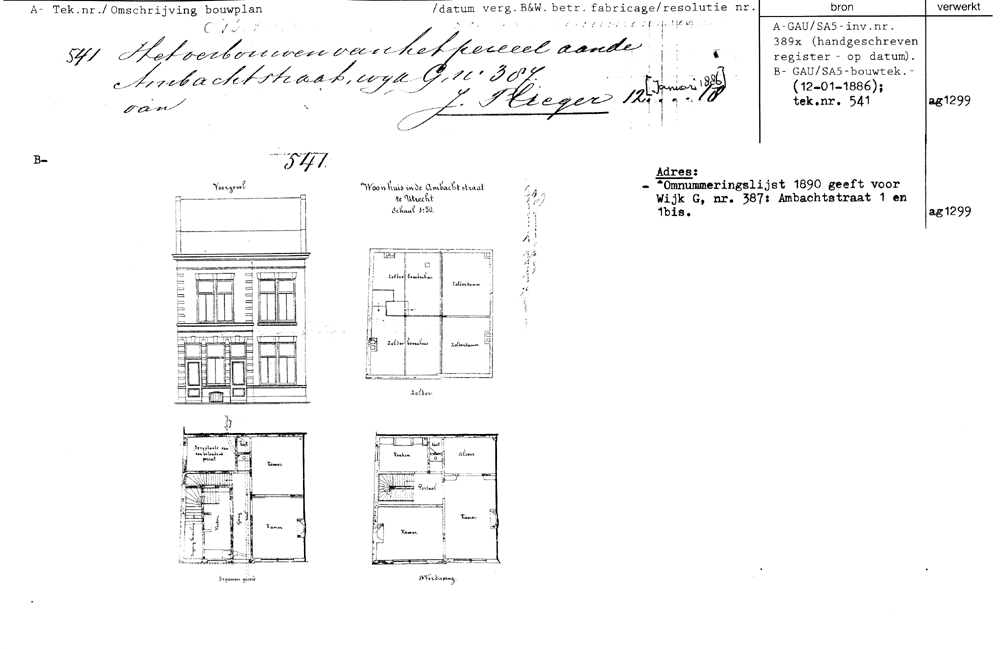 A- Tek.nr./Omschrijving bouwplan /datum verg.B&W. betr. fabricage/resolutie nr. bron verwerkt
541 Het verbouwen van het perceel aan de
Ambachtstraat, wyk G, no 387.
van J. Plieger 12 [Januari 1886] 18
A-GAU/SA5-inv.nr.
389x (handgeschreven
register - op datum).
B- GAU/SA5-bouwtek.-
(12-01-1886);
tek.nr. 541 ag1299
B- 541.
Adres:
- "Omnummeringslijst 1890 geeft voor
Wijk G, nr. 387: Ambachtstraat 1 en
1bis. ag1299
Voorgevel
Woonhuis in de Ambachtstraat
te Utrecht
Schaal 1:50.
Zolder bovenhuis
Zolderkamer
Zolder benehuis
Zolderkamer
Zolder
Kamer
Keuken
Gang
Kamer
Beganen grond
Keuken
Alcove
Portaal
Kamer
Kamer
1e Verdieping.